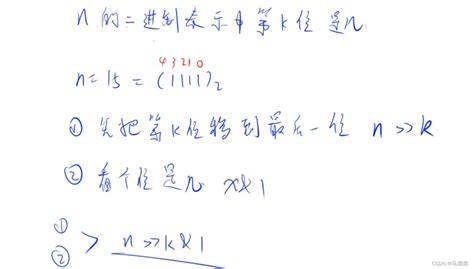 n 的二进制表示中第k位是几
4 3 2 1 0
n = 15 = (1111)₂
① 先把第k位移到最后一位 n >> k
② 看个位是几 x&1
①
② > n >> k & 1
CSDN @马潇潇